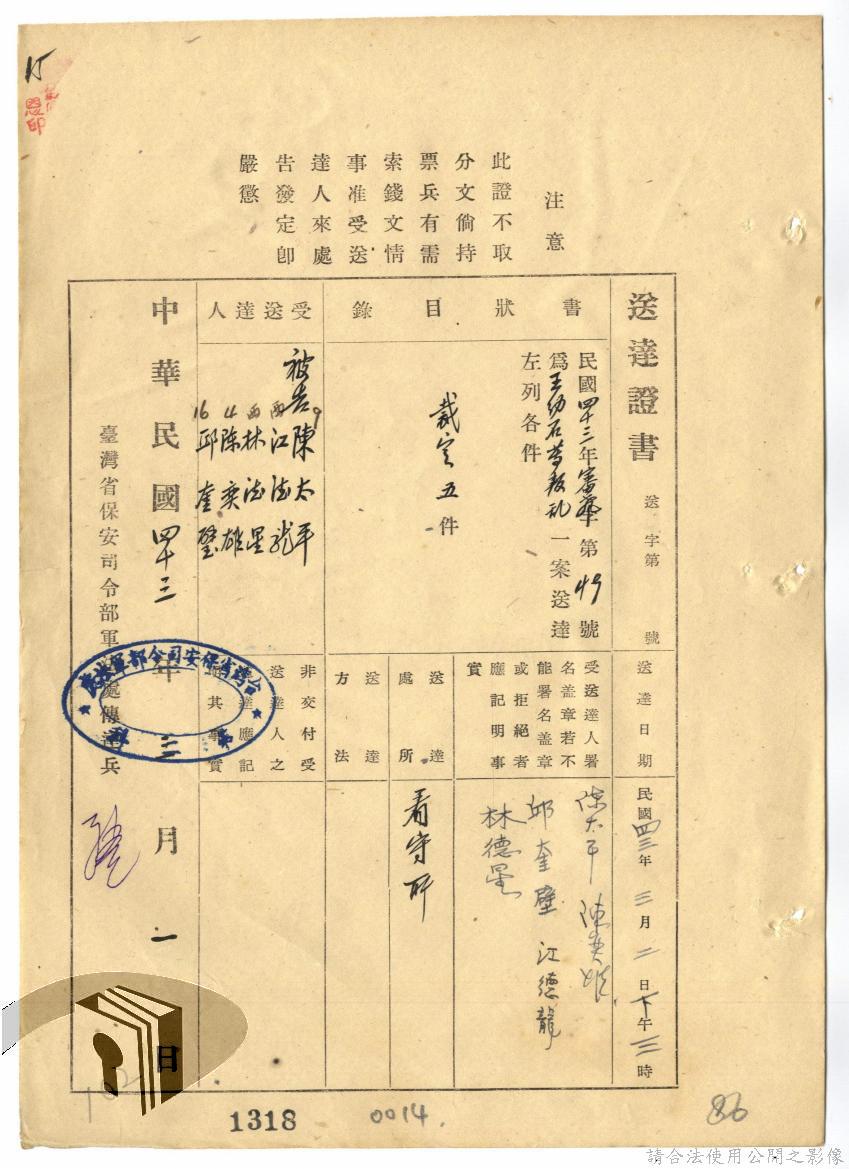 注意
此證不取
分文倘持
票兵有需
索錢文情
事准受送
達人來處
告發定卽
嚴懲
送達證書
送 字第 號
書狀目錄
民國四十三年審 第49號
爲王幼石等叛乱一案送達
左列各件
裁定五件
受送達人
被告陳太平
江德龍
林德星
4 陳奕雄
16 邱奎璧
送達日期
民國四三年三月二日下午三時
受送達人署
名盖章若不
能署名盖章
或拒絕者
應記明事
實
陳太平 陳奕雄
邱奎璧 江德龍
林德星
送達
處所
看守所
送達
方法
非交付受
送達人之
送達應記
明其事實
中華民國四十三年三月一日
臺灣省保安司令部軍法處傳達兵
台灣省保安司令部軍法處
1318
0014.
86
請合法使用公開之影像